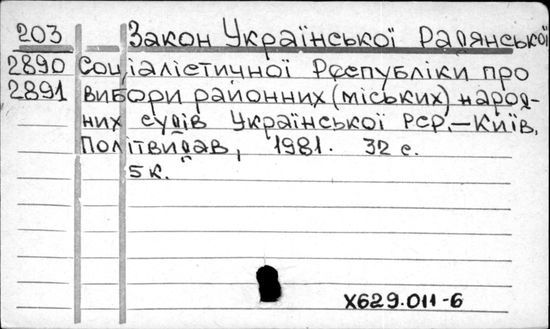 203 Закон Української Радянської
2890 Соціалістичної Республіки про
2891 вибори районних (міських) народ-
них судів Української РСР. — Київ,
Політвидав, 1981. 32 с.
5 к.
Х629.011-6